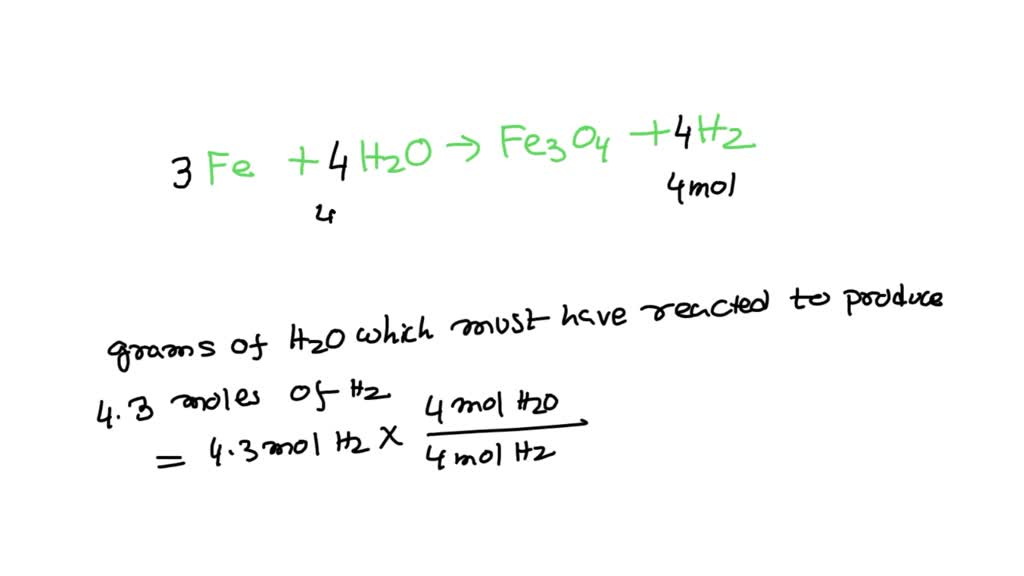 3 Fe + 4 H₂O → Fe₃O₄ + 4 H₂
4 4 mol
grams of H₂O which must have reacted to produce
4.3 moles of H₂
= 4.3 mol H₂ × 4 mol H₂O
4 mol H₂